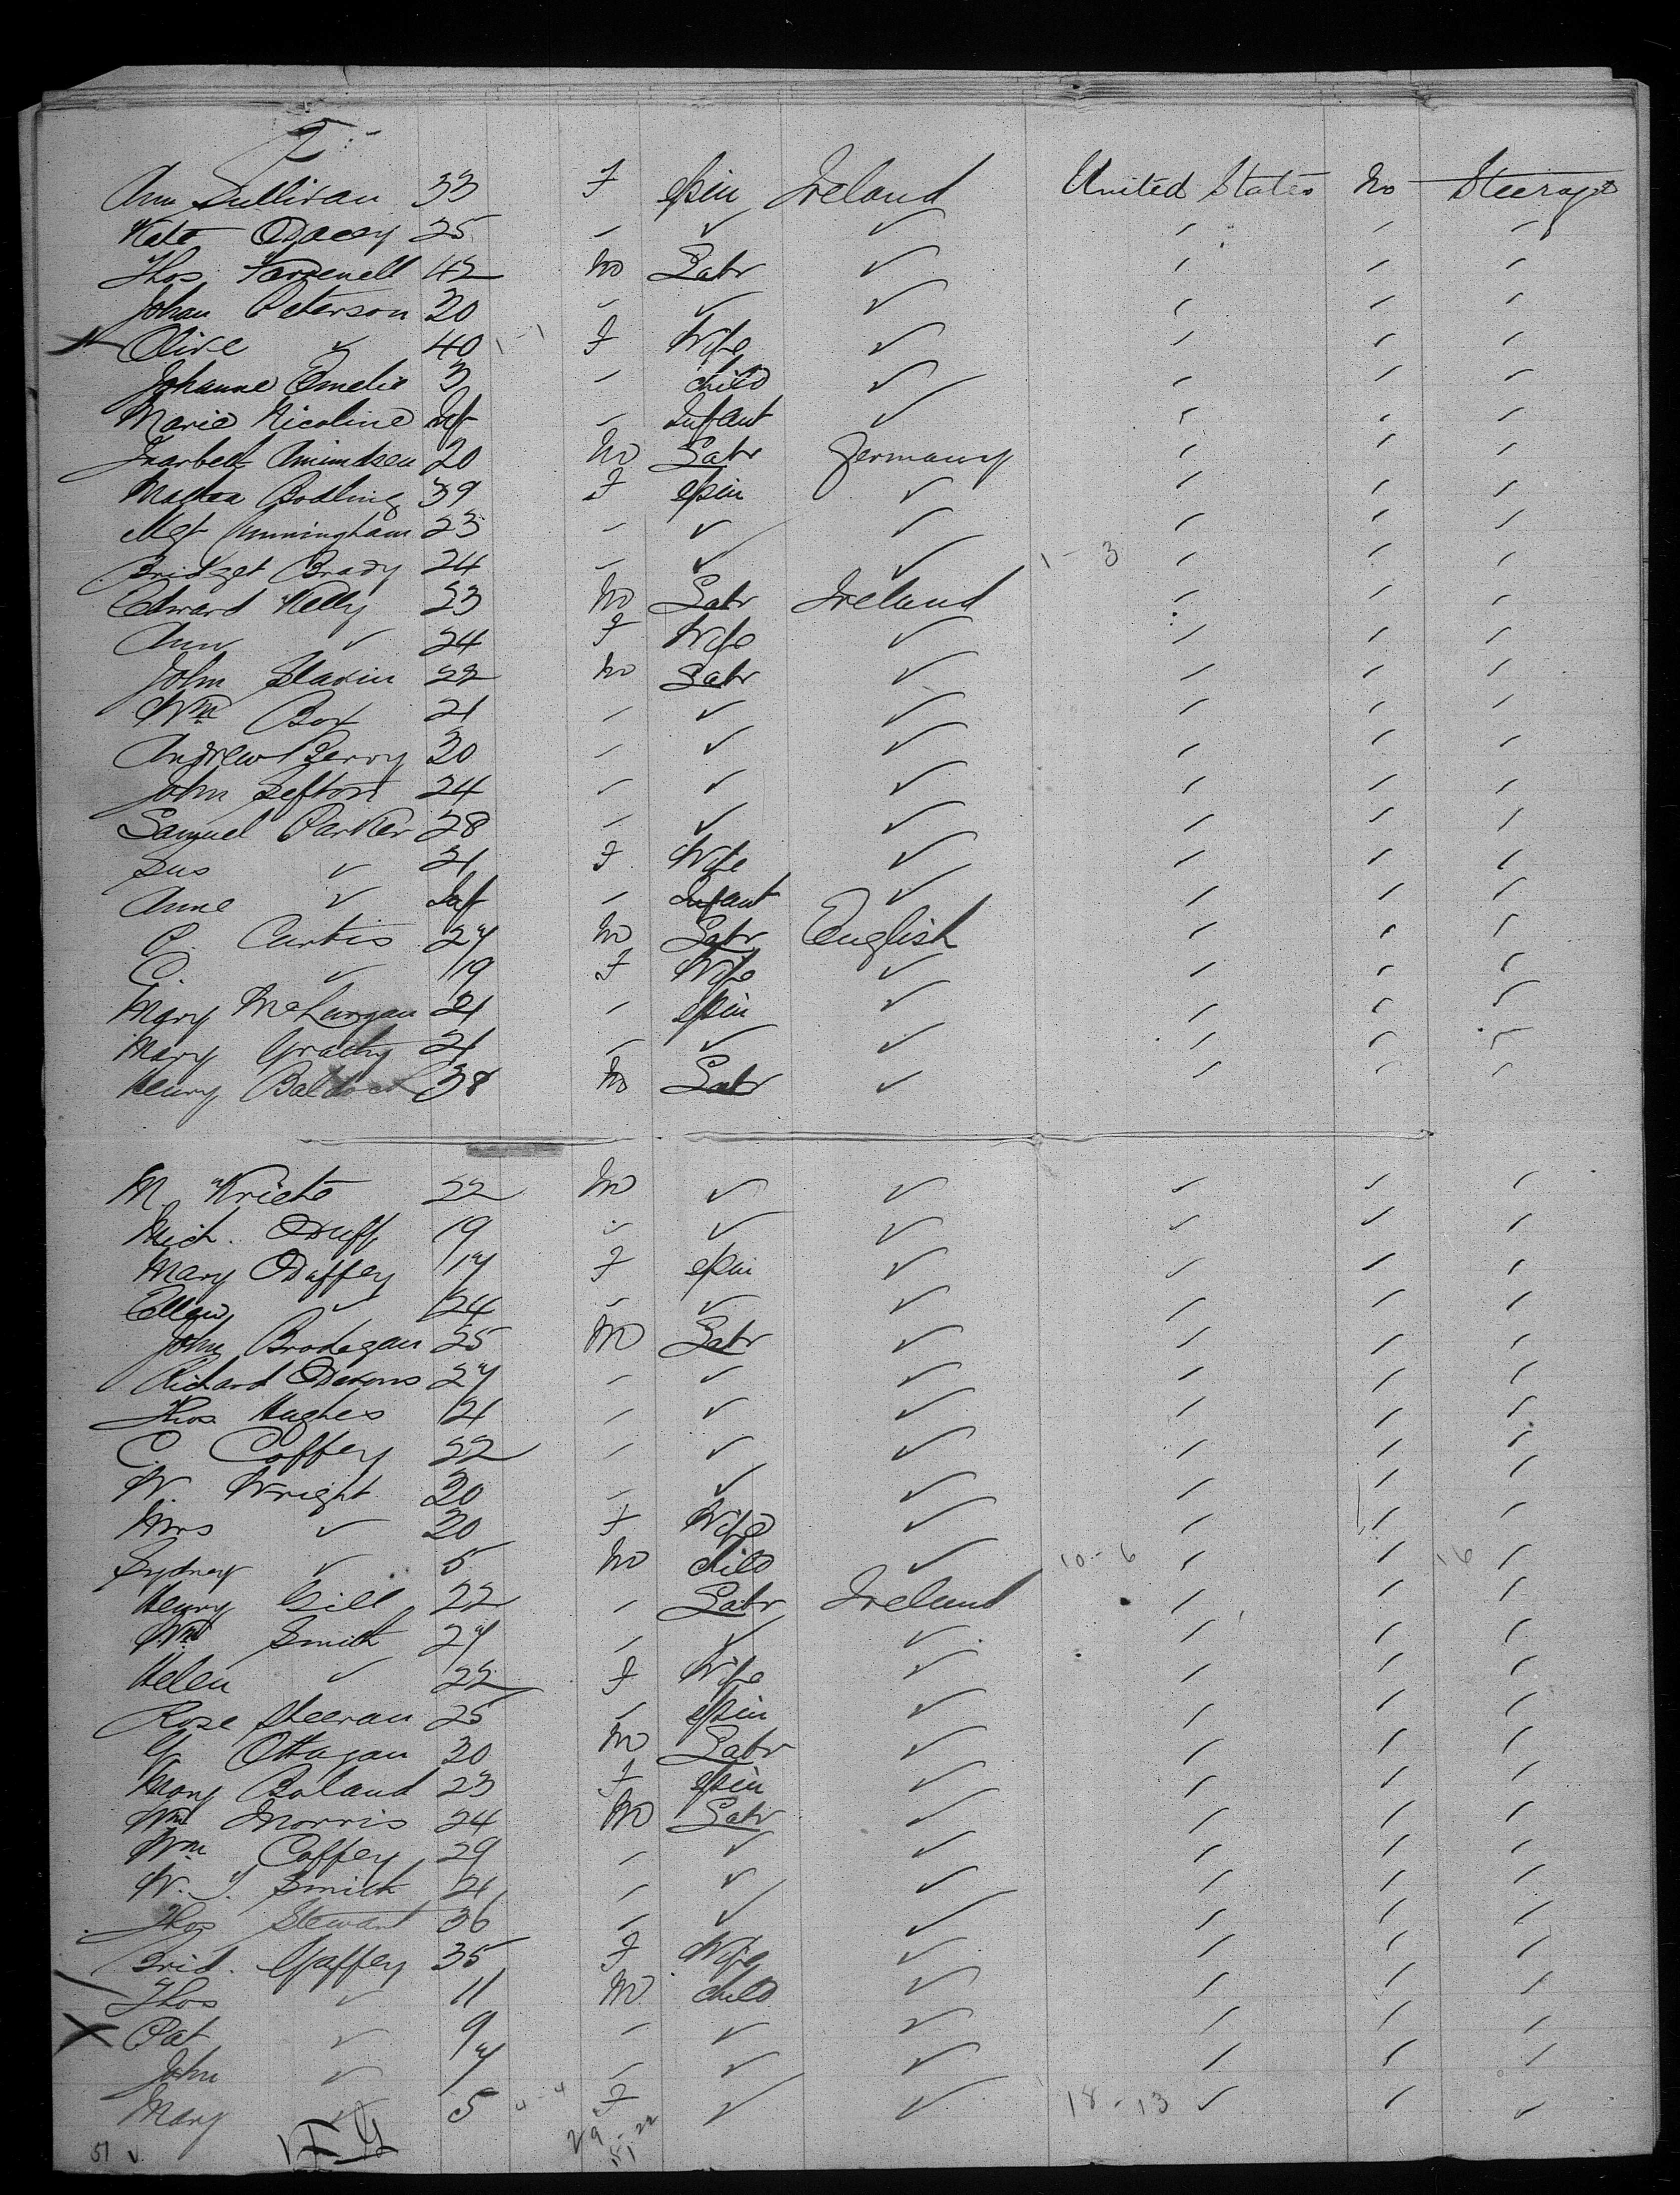 F
Ann Sullivan 33 F Spin Ireland United States No Steerage
Kate 25 - ✓ ✓ ' ' '
Thos 42 M Labr ✓ ' ' '
Johan Peterson 30 - ✓ ✓ ' ' '
Olive ✓ 40 1-1 F Wife ✓ ' ' '
Johanne Emelie 3 - Child ✓ ' ' '
Marie Nicoline Inf - Infant ✓ ' ' '
Amundsen 20 M Labr Germany ' ' '
Bodling 39 F Spin ✓ ' ' '
Mgt Cunningham 23 - ✓ ✓ ' ' '
Bridget Brady 24 - ✓ ✓ 1 - 3 ' ' '
Edward Kelly 23 M Labr Ireland ' ' '
Ann ✓ 24 F Wife ✓ ' ' '
John Slavin 22 M Labr ✓ ' ' '
Wm Box 21 - ✓ ✓ ' ' '
Andrew Berry 30 - ✓ ✓ ' ' '
John Sefton 24 - ✓ ✓ ' ' '
Samuel Parker 28 - ✓ ✓ ' ' '
Sus ✓ 21 F Wife ✓ ' ' '
Anne ✓ Inf - Infant ✓ ' ' '
P. Curtis 27 M Labr English ' ' '
C. ✓ 19 F Wife ✓ ' ' '
Mary McLurgan 21 - Spin ✓ ' ' '
Mary 21 - ✓ ✓ ' ' '
Henry Baldock 38 M Labr ✓ ' ' '
M. 22 M ✓ ✓ ✓ ✓ '
Mich. Duff 19 - ✓ ✓ ✓ ✓ '
Mary Duffey 17 F Spin ✓ ✓ ' '
Ellen ✓ 24 - ✓ ✓ ' ' '
John Brodegan 25 M Labr ✓ ' ' '
Richard 27 - ✓ ✓ ' ' '
Thos Hughes 21 - ✓ ✓ ' ' '
C. Coffey 22 - ✓ ✓ ' ' '
W. Wright 30 - ✓ ✓ ' ' '
Mrs ✓ 30 F Wife ✓ ' ' '
Sydney ✓ 5 M Child ✓ 10-6 ' ' 16 '
Henry Gill 22 - Labr Ireland ' ' '
Wm Smith 27 - ✓ ✓ ' ' '
Helen ✓ 22 F Wife ✓ ' ' '
Rose Sheeran 25 - Spin ✓ ' ' '
30 M Labr ✓ ' ' '
Mary Boland 23 F Spin ✓ ' ' '
Wm Morris 24 M Labr ✓ ' ' '
Wm Coffey 29 - ✓ ✓ ' ' '
W. J. Smith 21 - ✓ ✓ ' ' '
Thos Stewart 36 - ✓ ✓ ' ' '
Brid. Gaffey 35 F Wife ✓ ' ' '
Thos ✓ 11 M Child ✓ ' ' '
Pat ✓ 9 - ✓ ✓ ' ' '
John ✓ 7 - ✓ ✓ ' ' '
Mary ✓ 5 F ✓ ✓ 18-13 ✓ ' ✓
51 ✓ 29-22
51